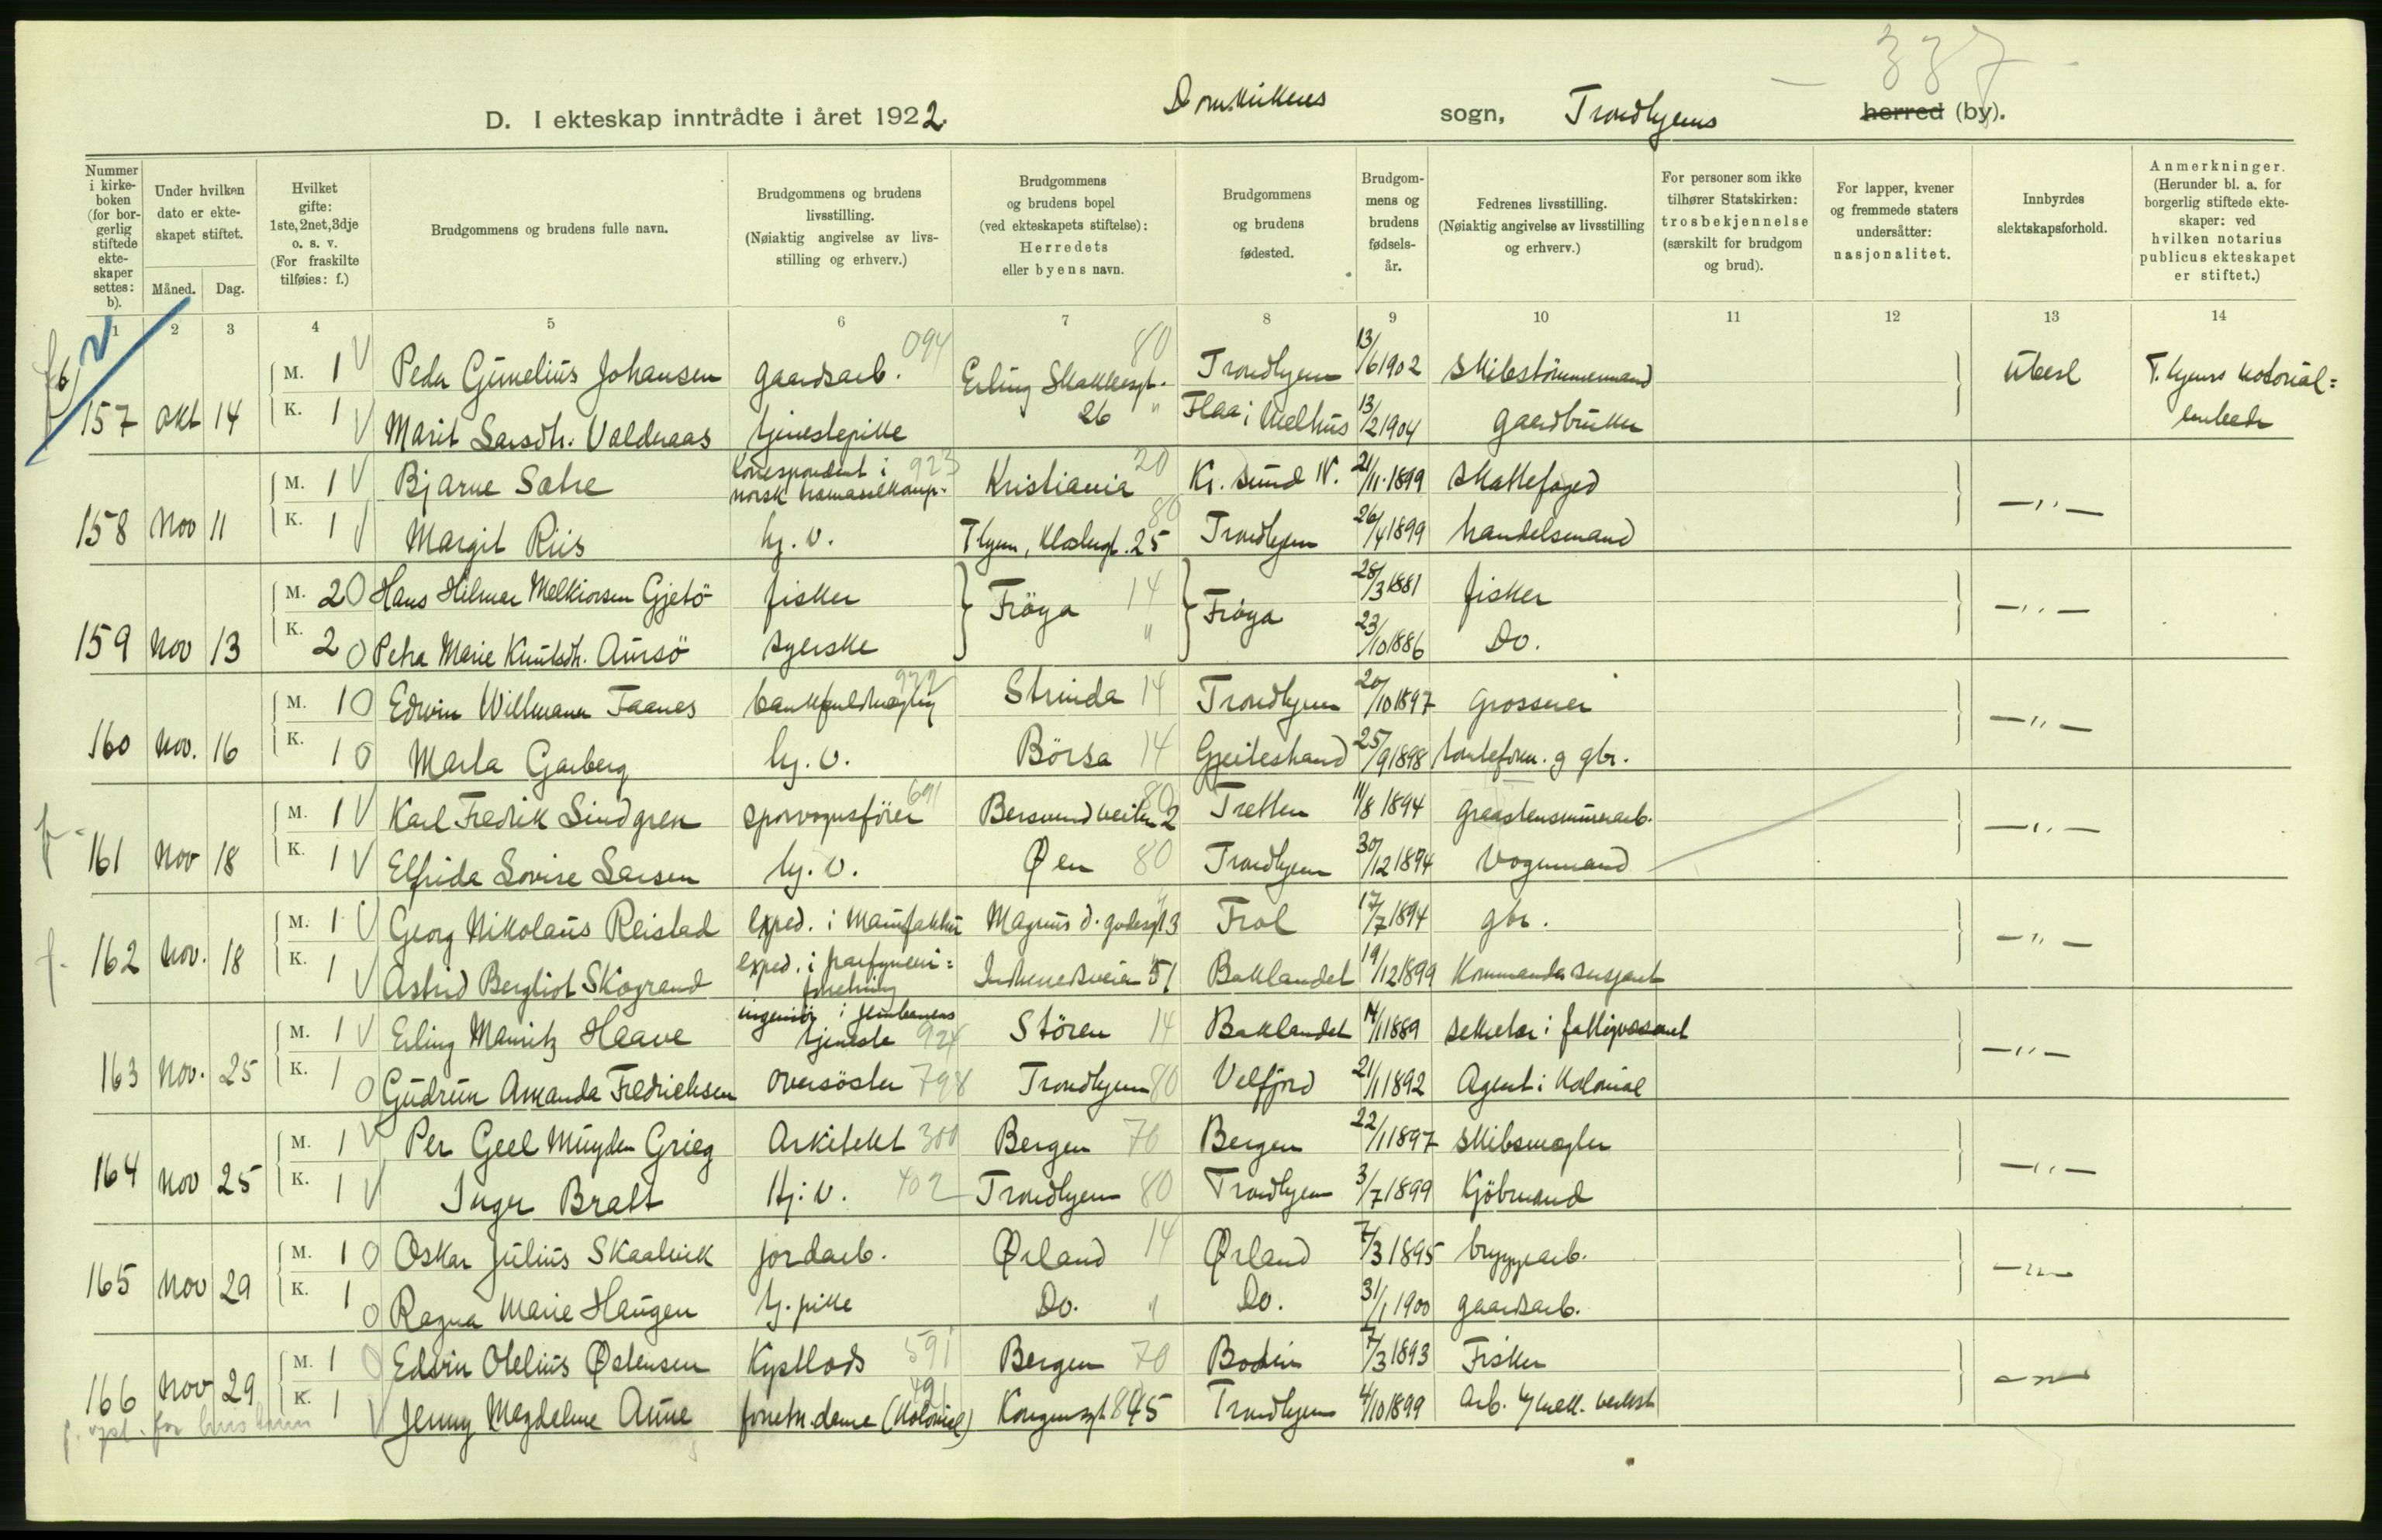 337
D. I ekteskap inntrådte i året 1922. Domkirkens sogn, Trondhjems herred (by).
Nummer i kirkeboken (for borgerlig stiftede ekteskaper settes: b). Under hvilken dato er ekteskapet stiftet. Måned. Dag. Hvilket gifte: 1ste, 2net, 3dje o. s. v. (For fraskilte tilføies: f.) Brudgommens og brudens fulle navn. Brudgommens og brudens livsstilling. (Nøiaktig angivelse av livsstilling og erhverv.) Brudgommens og brudens bopel (ved ekteskapets stiftelse): Herredets eller byens navn. Brudgommens og brudens fødested. Brudgommens og brudens fødselsår. Fedrenes livsstilling. (Nøiaktig angivelse av livsstilling og erhverv.) For personer som ikke tilhører Statskirken: trosbekjennelse (særskilt for brudgom og brud). For lapper, kvener og fremmede staters undersåtter: nasjonalitet. Innbyrdes slektskapsforhold. Anmerkninger. (Herunder bl. a. for borgerlig stiftede ekteskaper: ved hvilken notarius publicus ekteskapet er stiftet.)
1 2 3 4 5 6 7 8 9 10 11 12 13 14
M. 1 V Peder Gunelius Johansen gaardsarb. 094 Erling Skakkesgt. 80 Trondhjem 13/6 1902 Skibstømmermand ubesl T.hjems notorial=
157 Okt 14 K. 1 V Marit Larsdtr. Valdraas tjenestepike 26 " Flaa i Melhus 13/2 1904 gaardbruker embede
M. 1 V Bjarne Sætre korrespondent i norsk 923 Kristiania 20 Kr. sund N. 21/11 1899 Skattefoged
158 Nov 11 K. 1 V Margit Riis hj. v. Thjem, Klostergt. 25 80 Trondhjem 26/4 1899 handelsmand — " —
M. 2 0 Hans Hilmar Melkiorsen Gjetö fisker Fröya 14 Fröya 28/3 1881 fisker
159 Nov 13 K. 2 0 Petra Marie Knutsdtr. Aursö syerske " 23/10 1886 Do. — " —
M. 1 0 Edvin Willmann Faanes bankfuldmægtig 922 Strinda 14 Trondhjem 20/10 1897 Grosserer
160 Nov. 16 K. 1 0 Marta Garberg hj. v. Börsa 14 Gjeitestrand 25/9 1898 g gbr. — " —
M. 1 V Karl Fredrik Lindgren sporvognsförer 691 Bersvendveiten 2 80 Tretten 11/8 1894
161 Nov 18 K. 1 V Elfrida Lovise Larsen hj. v. Øen 80 Trondhjem 30/12 1894 Vognmand — " —
M. 1 V Georg Nikolaus Reistad exped. i Manufaktur Magnus d. godesgt 3 Frol 17/7 1894 gbr.
162 Nov. 18 K. 1 V Astrid Bergliot Skogrand exped. i parfymeri= forretning Innherredsveien 51 Baklandet 19/12 1899 Kommandersersjant — " —
M. 1 V Erling Mauritz Haave ingeniør i jernbanens tjeneste 924 Stören 14 Baklandet 14/1 1889 sekretær i
163 Nov. 25 K. 1 0 Gudrun Amanda Fredrichsen oversöster 798 Trondhjem 80 Velfjord 21/1 1892 Agent i Kolonial — " —
M. 1 V Per Geel Muyden Grieg Arkitekt 300 Bergen 70 Bergen 22/1 1897 skibsmægler
164 Nov 25 K. 1 V Inger Bratt Hj. v. 402 Trondhjem 80 Trondhjem 3/7 1899 Kjöbmand — " —
M. 1 0 Oskar Julius Skaalvik jordarb. Ørland 14 Ørland 7/3 1895 bryggearb.
165 Nov 29 K. 1 0 Ragna Marie Haugen tj. pike Do. " Do. 31/1 1900 gaardsarb. — " —
M. 1 0 Edvin Otelius Østensen Kystlods 591 Bergen 70 Bodin 7/3 1893 Fisker
166 Nov 29 K. 1 V Jenny Magdalene Aune forretn. dame (Kolonial) Kongensgt 85 Trondhjem 4/10 1899 Arb. v/ mek. verkst — " —